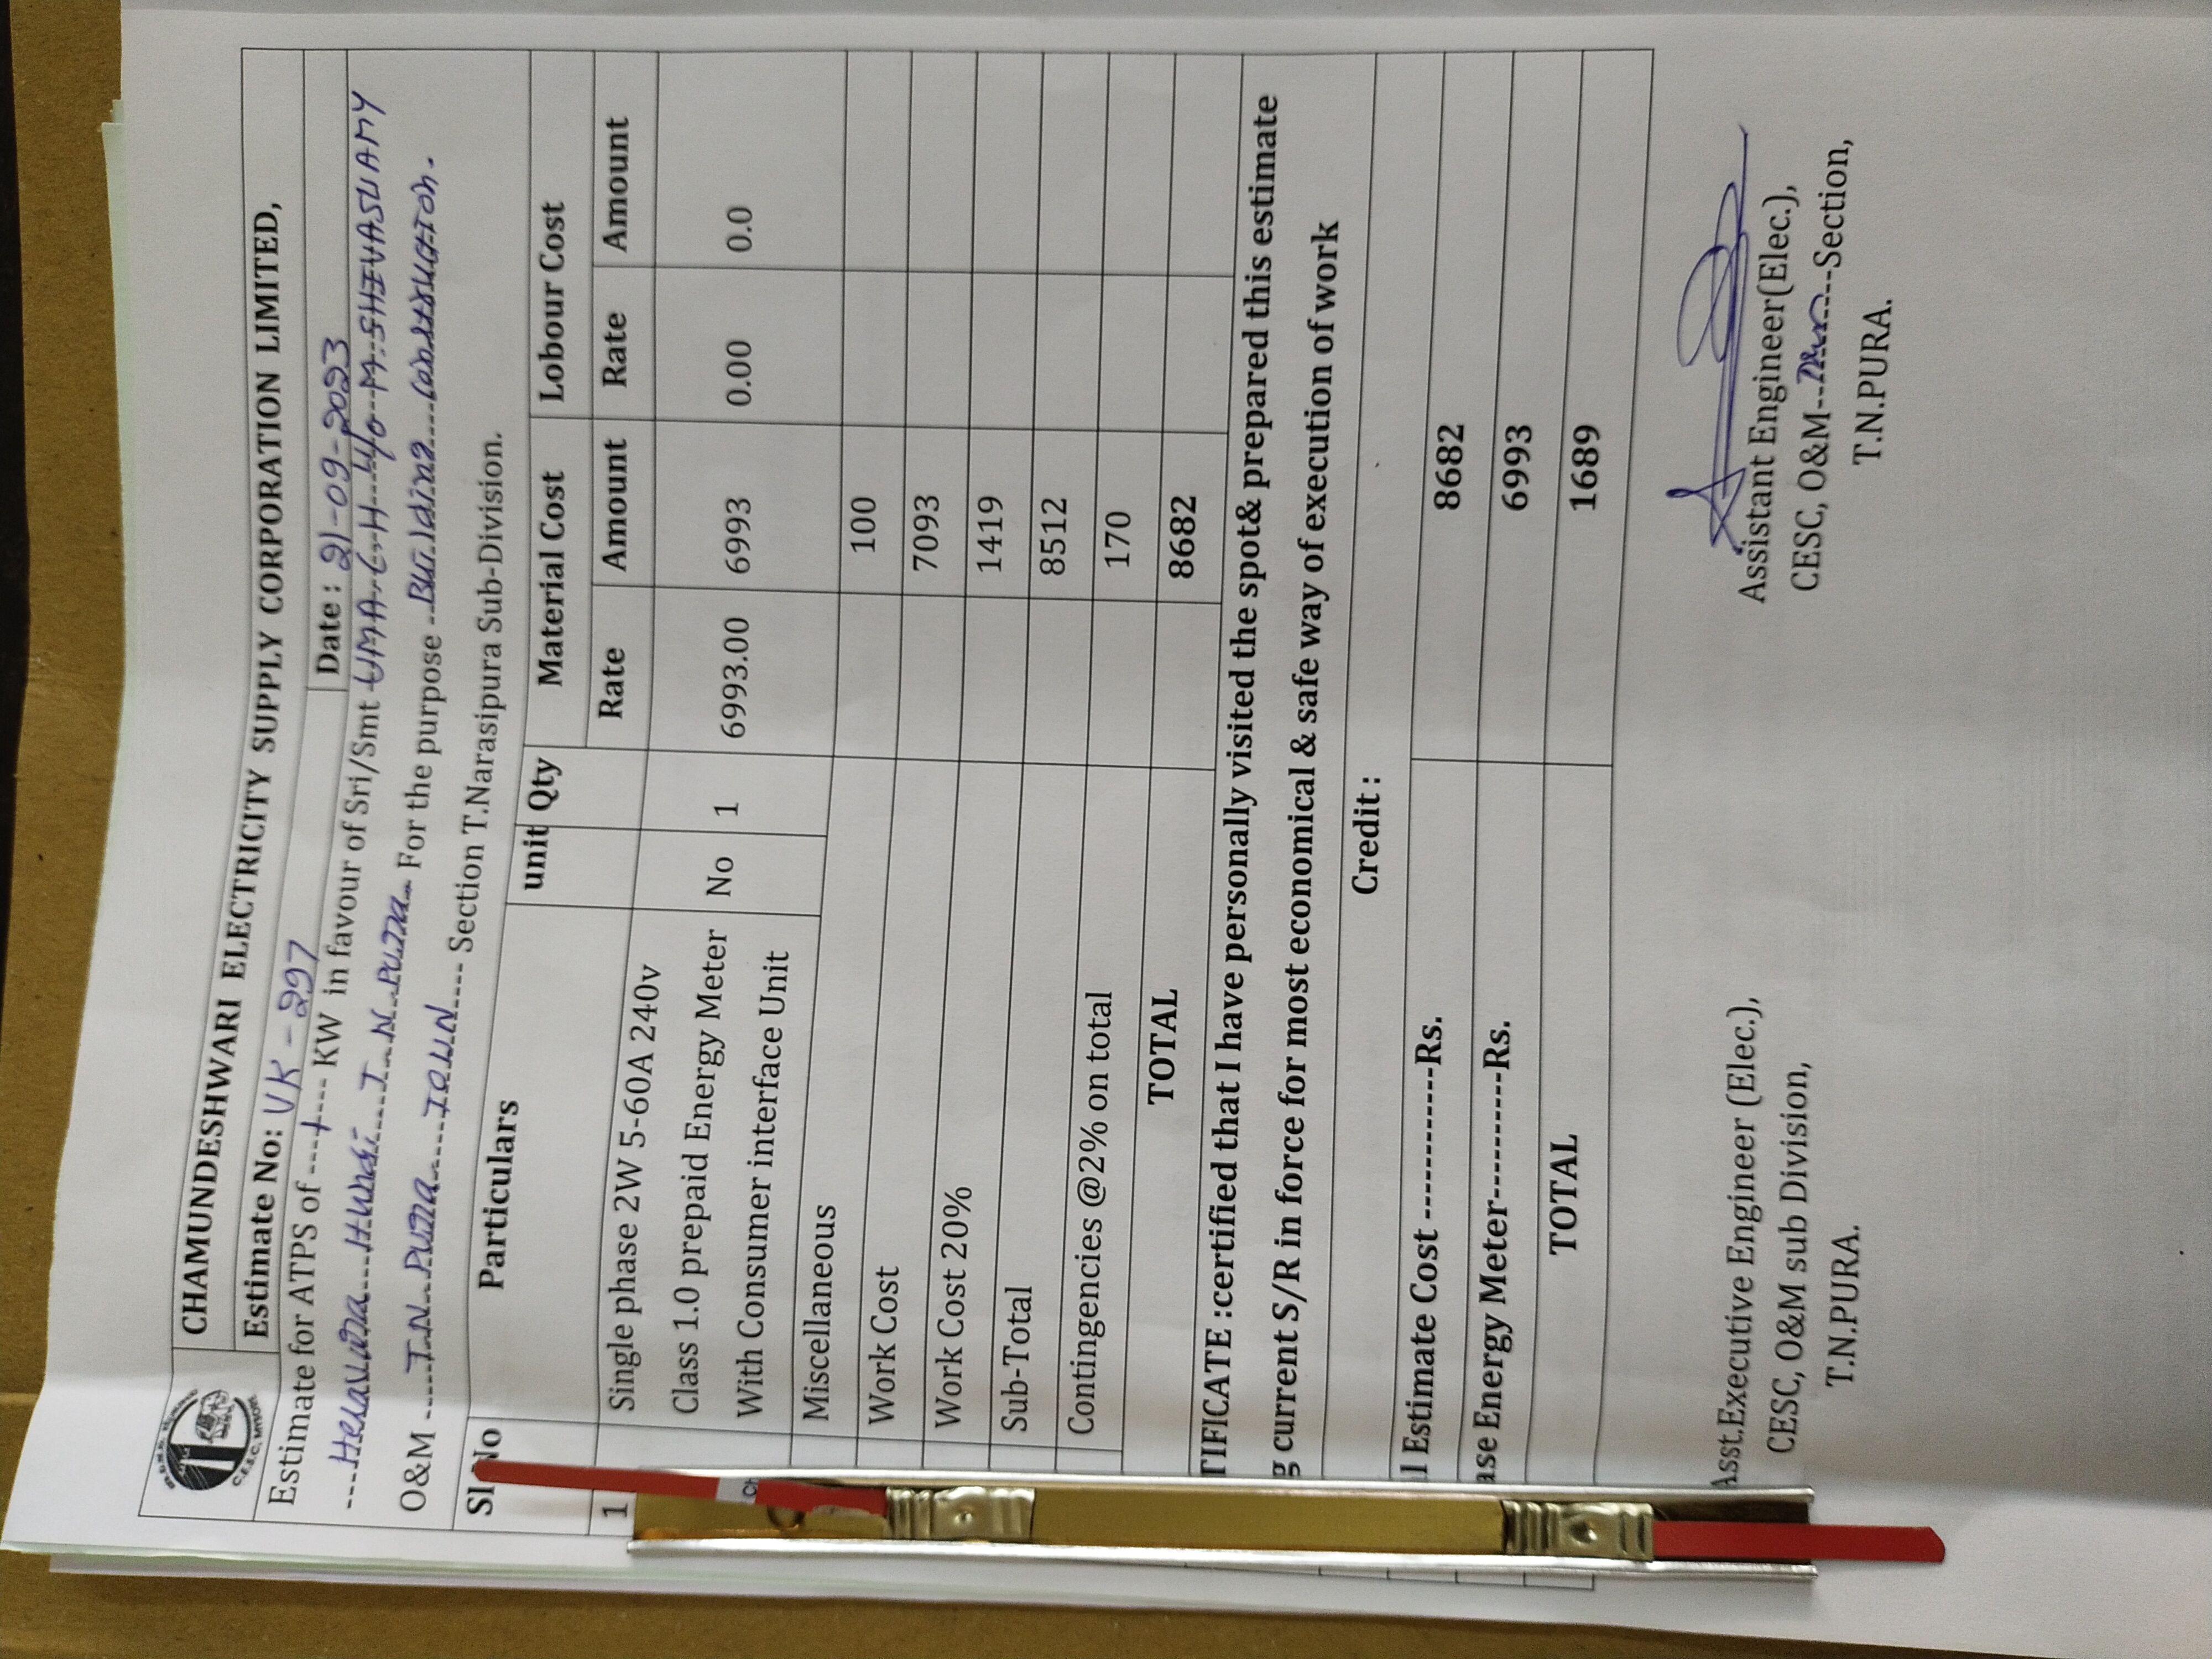 CHAMUNDESHWARI ELECTRICITY SUPPLY CORPORATION LIMITED,
Estimate No: VK - 297 Date : 21-09-2023
Estimate for ATPS of ---1---- KW in favour of Sri/Smt UMA.C.H W/o M.SHIVASWAMY
----Heravara Hundi T.N.Pura For the purpose --Building Construction.
O&M -----T.N.Pura TOWN---- Section T.Narasipura Sub-Division.
Sl No Particulars unit Qty Material Cost Lobour Cost
Rate Amount Rate Amount
1 Single phase 2W 5-60A 240v
Class 1.0 prepaid Energy Meter
With Consumer interface Unit No 1 6993.00 6993 0.00 0.0
Miscellaneous 100
Work Cost 7093
Work Cost 20% 1419
Sub-Total 8512
Contingencies @2% on total 170
TOTAL 8682
TIFICATE :certified that I have personally visited the spot& prepared this estimate
g current S/R in force for most economical & safe way of execution of work
Credit :
l Estimate Cost ------------Rs. 8682
ase Energy Meter-----------Rs. 6993
TOTAL 1689
Asst.Executive Engineer (Elec.),
CESC, O&M sub Division,
T.N.PURA.
Assistant Engineer(Elec.),
CESC, O&M-- ----Section,
T.N.PURA.